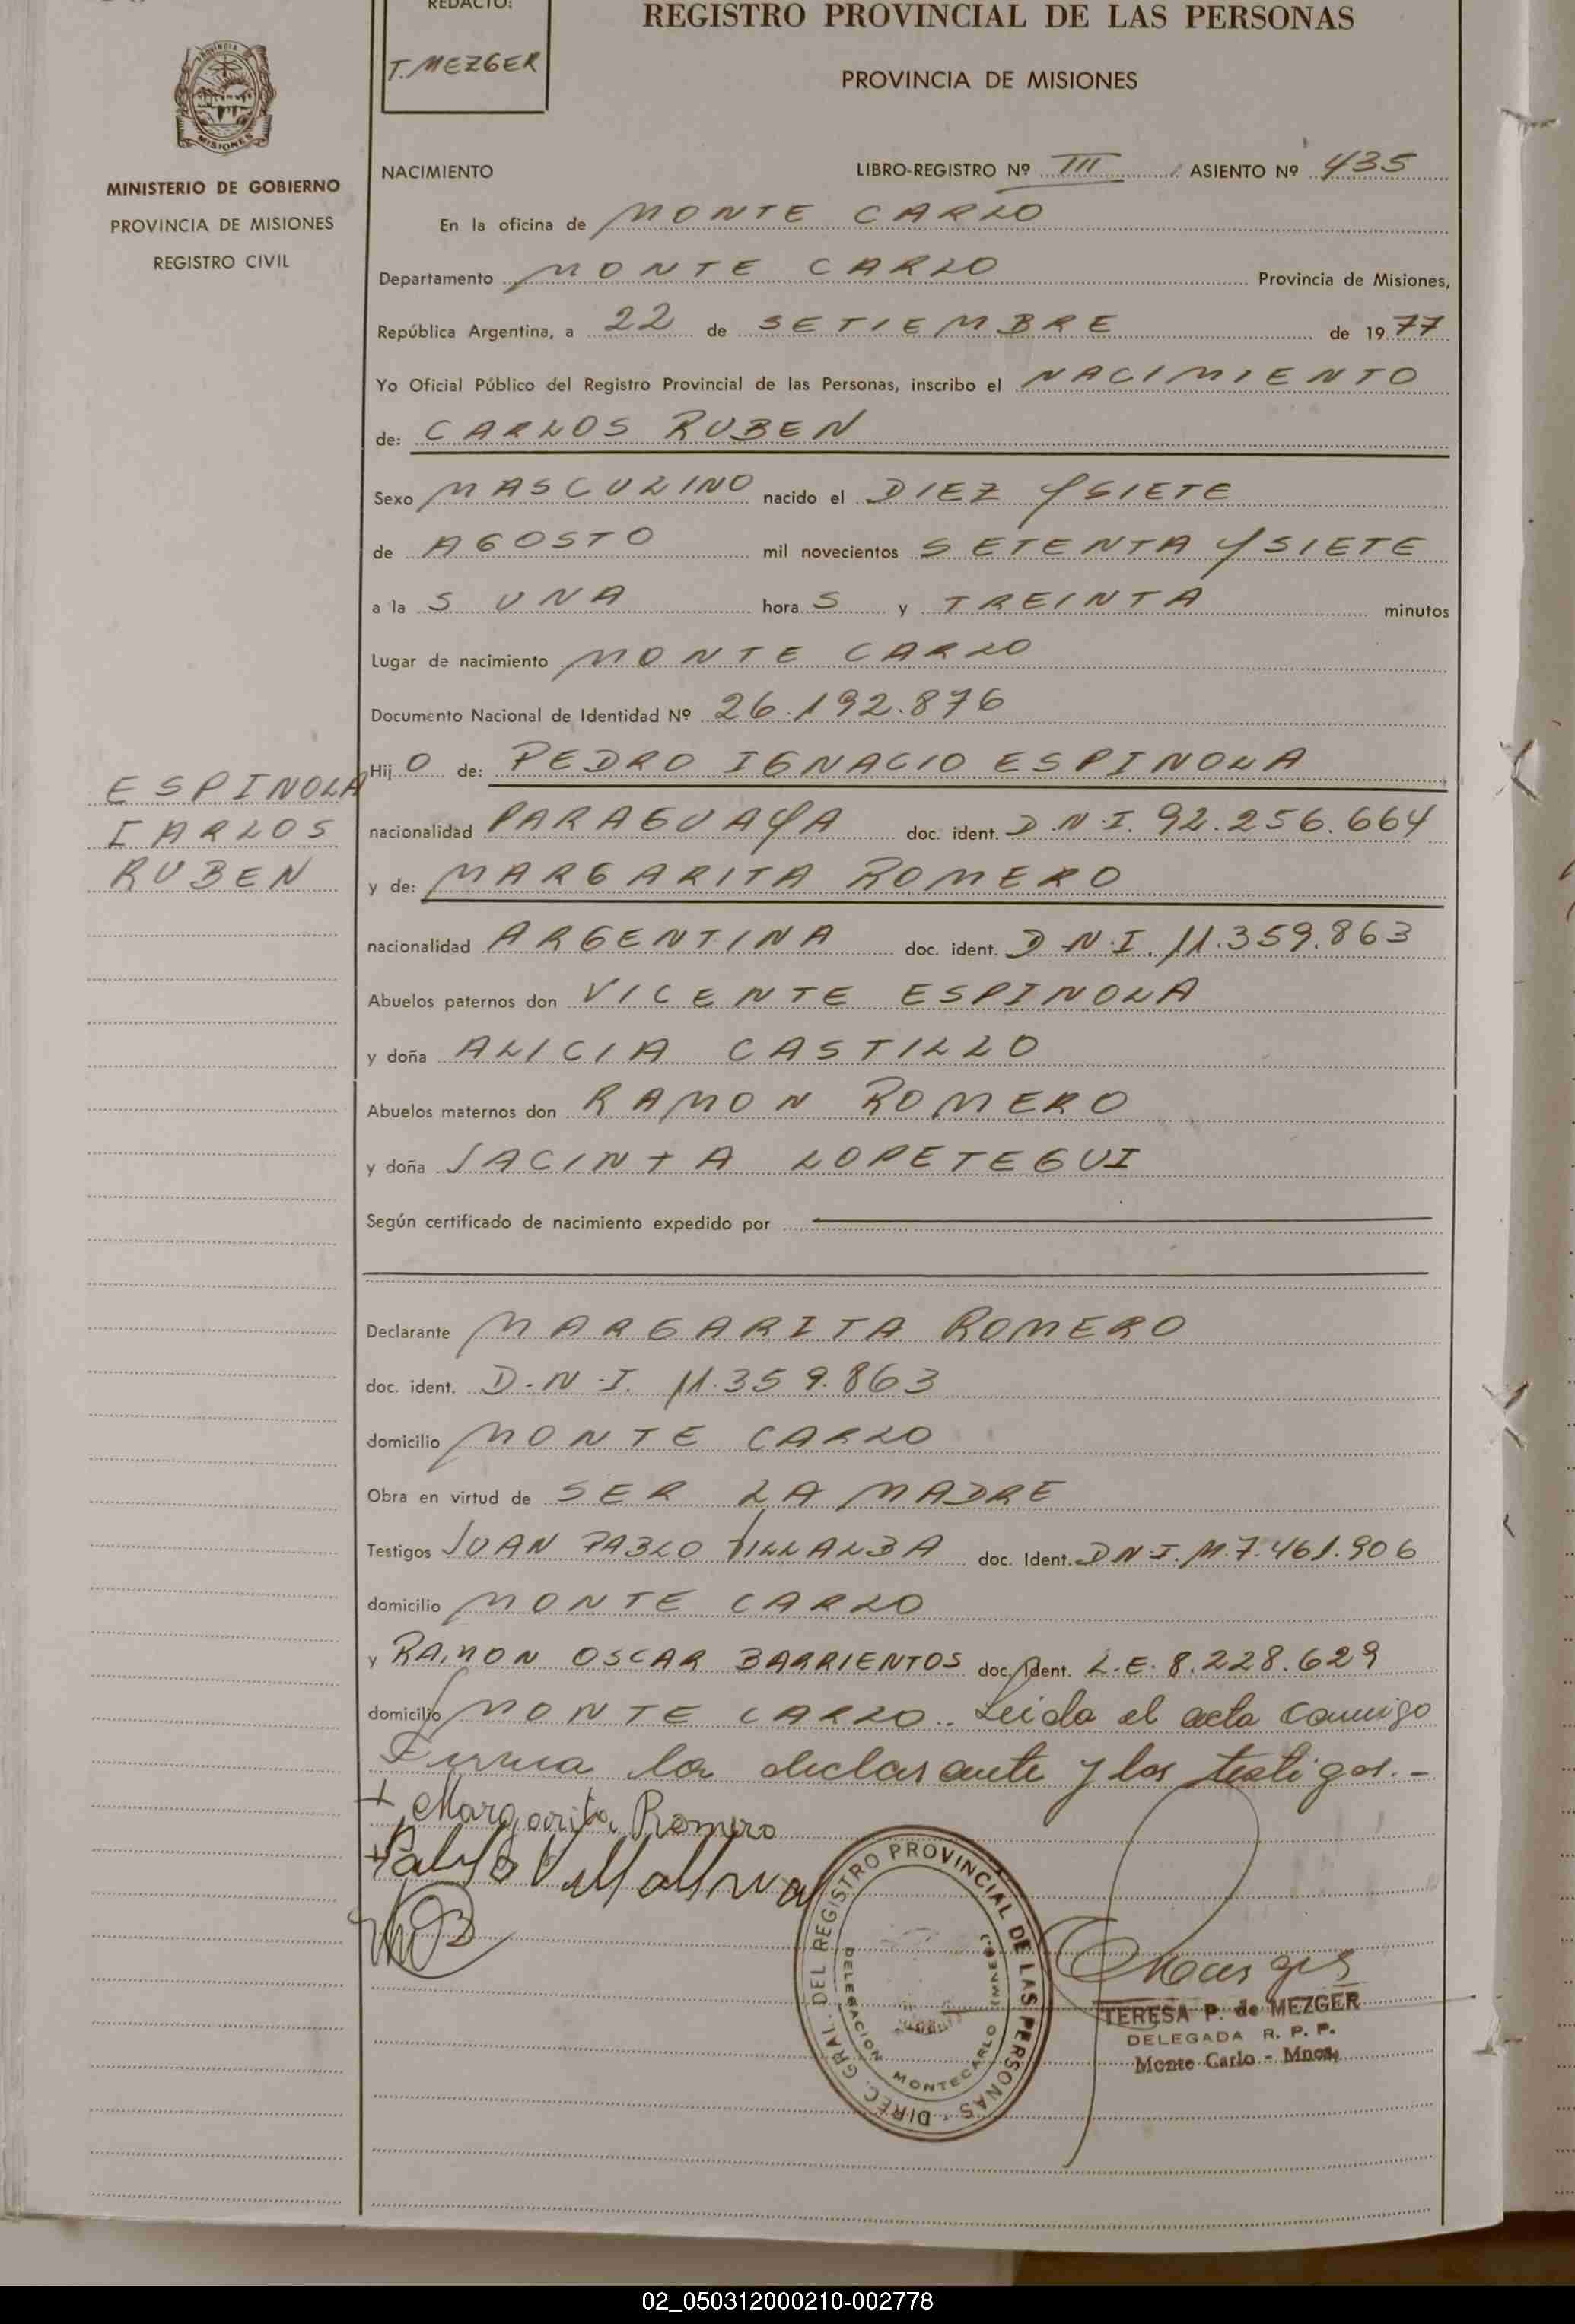 REDACTO:
T. MEZGER
REGISTRO PROVINCIAL DE LAS PERSONAS
PROVINCIA DE MISIONES
MISIONES
MINISTERIO DE GOBIERNO
PROVINCIA DE MISIONES
REGISTRO CIVIL
NACIMIENTO LIBRO-REGISTRO Nº III ASIENTO Nº 435
En la oficina de MONTE CARLO
Departamento MONTE CARLO Provincia de Misiones,
República Argentina, a 22 de SETIEMBRE de 1977
Yo Oficial Público del Registro Provincial de las Personas, inscribo el NACIMIENTO
de: CARLOS RUBEN
Sexo MASCULINO nacido el DIEZ Y SIETE
de AGOSTO mil novecientos SETENTA Y SIETE
a las UNA horas y TREINTA minutos
Lugar de nacimiento MONTE CARLO
Documento Nacional de Identidad Nº 26.192.876
ESPINOLA
CARLOS
RUBEN
Hijo de: PEDRO IGNACIO ESPINOLA
nacionalidad PARAGUAYA doc. ident. D.N.I. 92.256.664
y de: MARGARITA ROMERO
nacionalidad ARGENTINA doc. ident. D.N.I. 11.359.863
Abuelos paternos don VICENTE ESPINOLA
y doña ALICIA CASTILLO
Abuelos maternos don RAMON ROMERO
y doña JACINTA LOPETEGUI
Según certificado de nacimiento expedido por
Declarante MARGARITA ROMERO
doc. ident. D.N.I. 11.359.863
domicilio MONTE CARLO
Obra en virtud de SER LA MADRE
Testigos JUAN PABLO VILLALBA doc. Ident. D.N.I. M. 7.461.906
domicilio MONTE CARLO
y RAMON OSCAR BARRIENTOS doc. Ident. L.E. 8.228.629
domicilio MONTE CARLO.. Leida el acta conmigo
Firma la declarante y los testigos.-
+ Margarita Romero
+ Pablo Villalva
DIREC. GRAL. DEL REGISTRO PROVINCIAL DE LAS PERSONAS
DELEGACION MONTECARLO (MNES.)
TERESA P. de MEZGER
DELEGADA R. P. P.
Monte Carlo - Mnes.
02_050312000210-002778